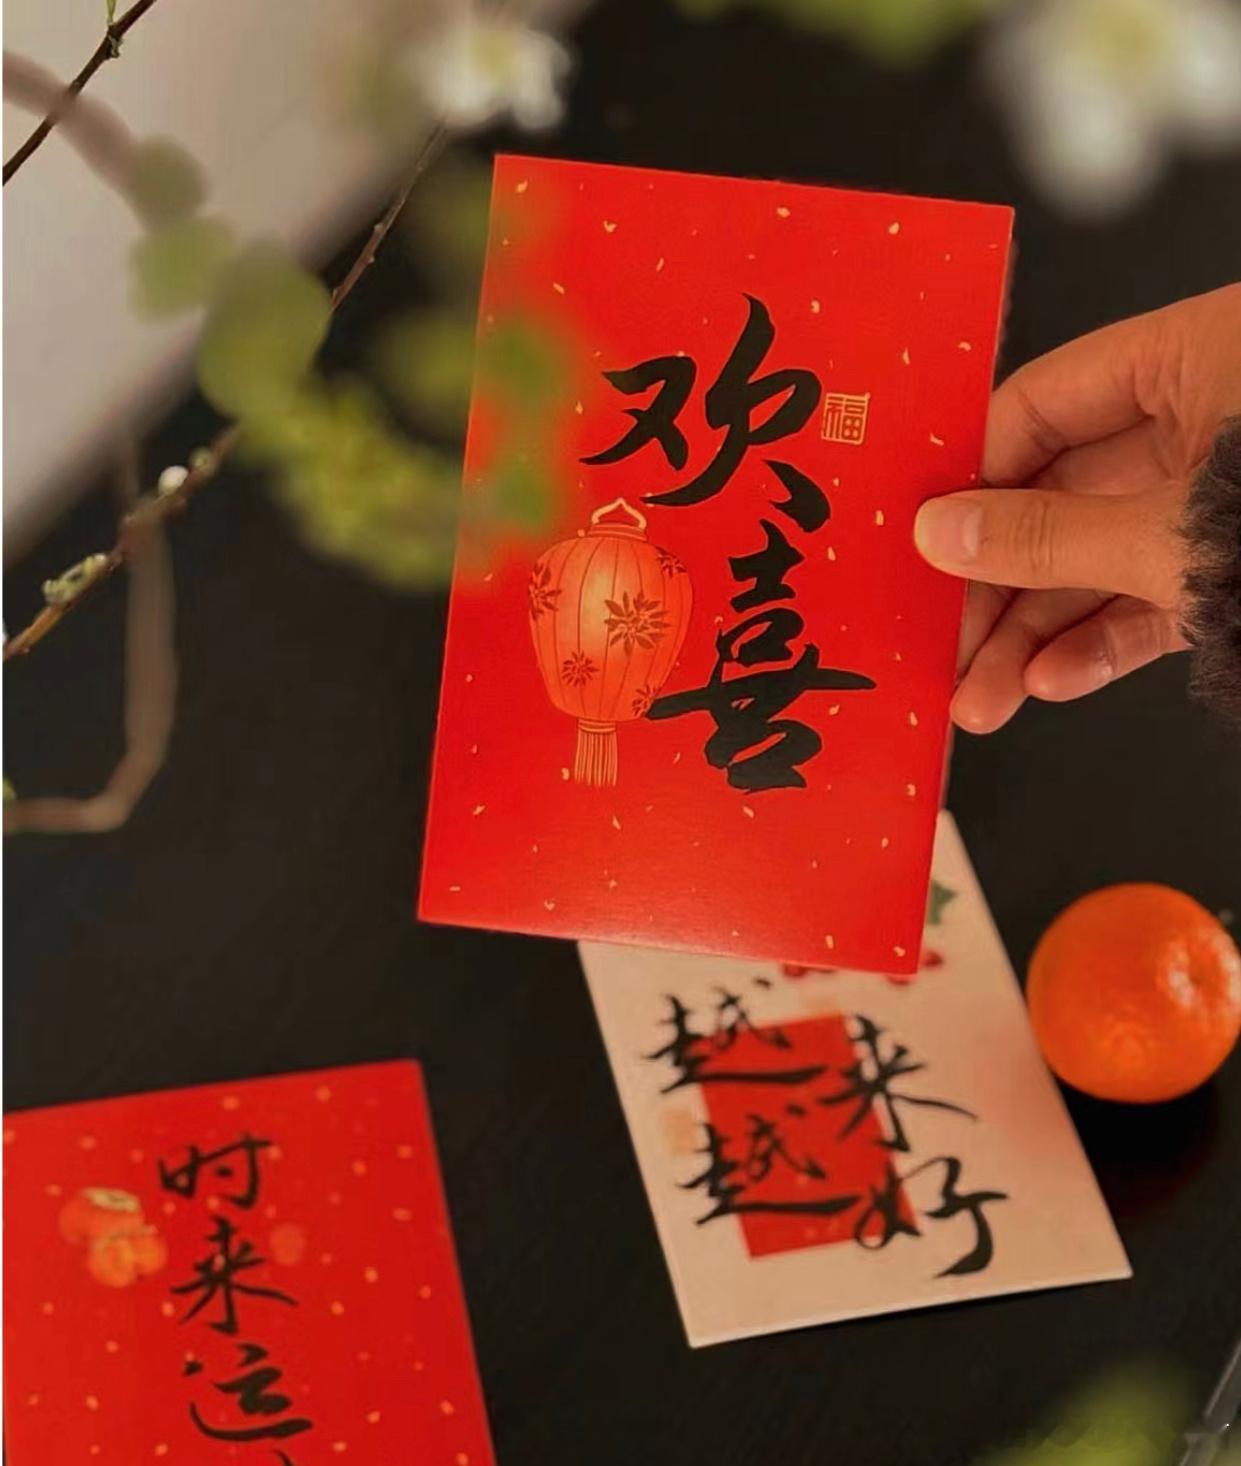 欢喜
福
越来
越好
时来运